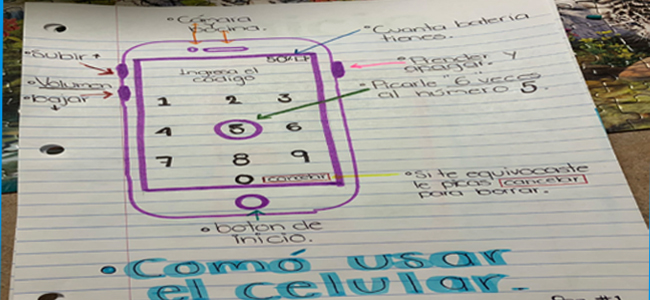 • Cámara
• Bocina.
• Cuanta batería
tienes.
• Subir ↑
• Volumen
• bajar
↓
50%
Ingresa el
código
• Prender y
apagar.
• Picarle "6 veces"
al número 5.
1 2 3
4 5 6
7 8 9
0 cancelar
• Si te equivocaste
le picas cancelar
para borrar.
• boton de
Inicio.
• Comó usar
el celular.